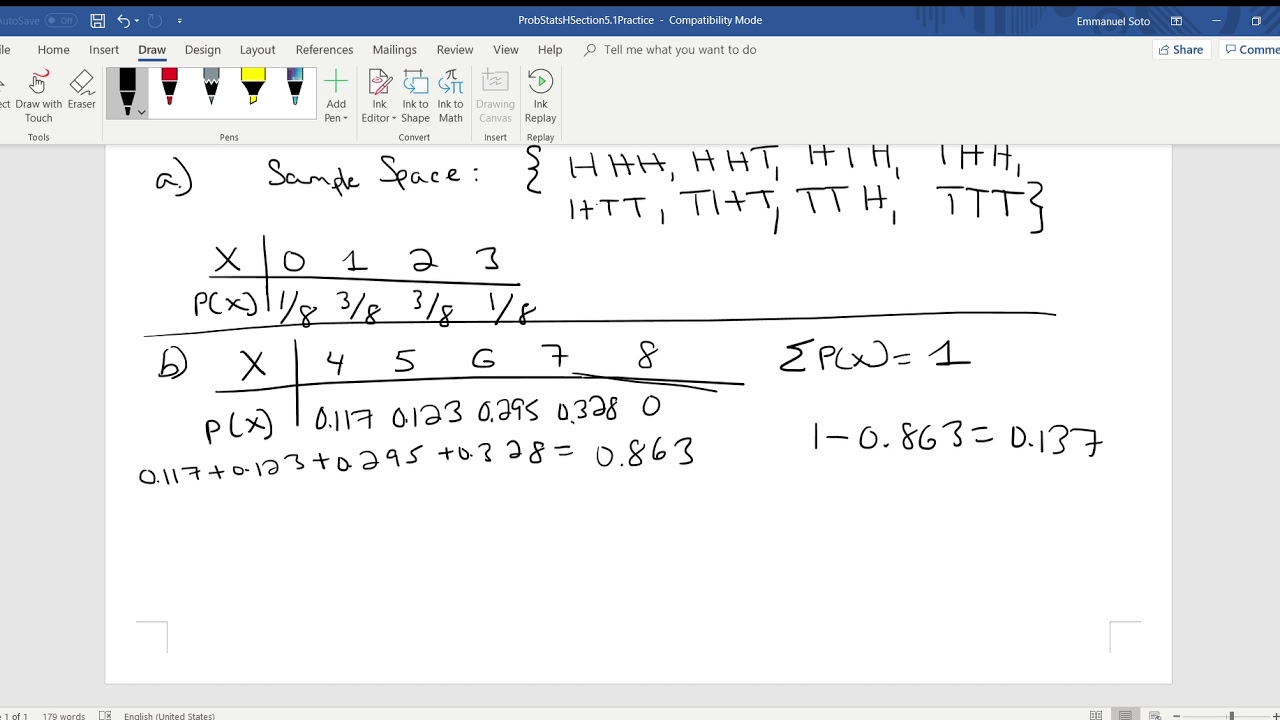 AutoSave Off ProbStatsHSection5.1Practice - Compatibility Mode Emmanuel Soto
ile Home Insert Draw Design Layout References Mailings Review View Help Tell me what you want to do Share Comme
ect Draw with Touch Eraser Add Pen Ink Editor Ink to Shape Ink to Math Drawing Canvas Ink Replay
Tools Pens Convert Insert Replay
a.) Sample Space: { HHH, HHT, HTH, THH,
HTT, THT, TTH, TTT}
X 0 1 2 3
P(X) 1/8 3/8 3/8 1/8
b) X 4 5 6 7 8 ΣP(X) = 1
P(X) 0.117 0.123 0.295 0.328 0
0.117+0.123+0.295+0.328= 0.863 1-0.863=0.137
e 1 of 1 179 words English (United States)